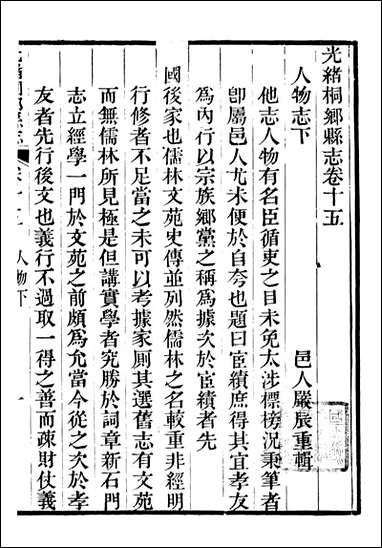 光緒桐鄉縣志卷十五
邑人嚴辰重輯
人物志下
他志人物有名臣循吏之目未免太涉標榜況秉筆者
卽屬邑人尤未便於自夸也題曰宦績庶得其宜孝友
為內行以宗族鄉黨之稱為據次於宦績者先
國後家也儒林文苑史傳並列然儒林之名較重非經明
行修者不足當之未可以考據家厠其選舊志有文苑
而無儒林所見極是但講實學者究勝於詞章新石門
志立經學一門於文苑之前頗為允當今從之次於孝
友者先行後文也義行不過取一得之善而疎財仗義
人物下
一